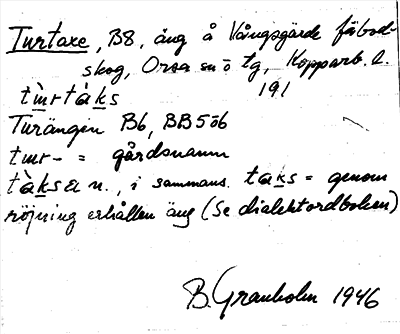 Turtaxe, B8, äng å Vångsgärde fäbod-
skog, Orsa sn o tg, Kopparb. l.
191
tɯrtàks
Turängen B6, BB5ö6
tɯr- = gårdsnamn
tàksa n., i sammans. taks = genom
röjning erhållen äng (Se dialektordboken)
B. Granholm 1946